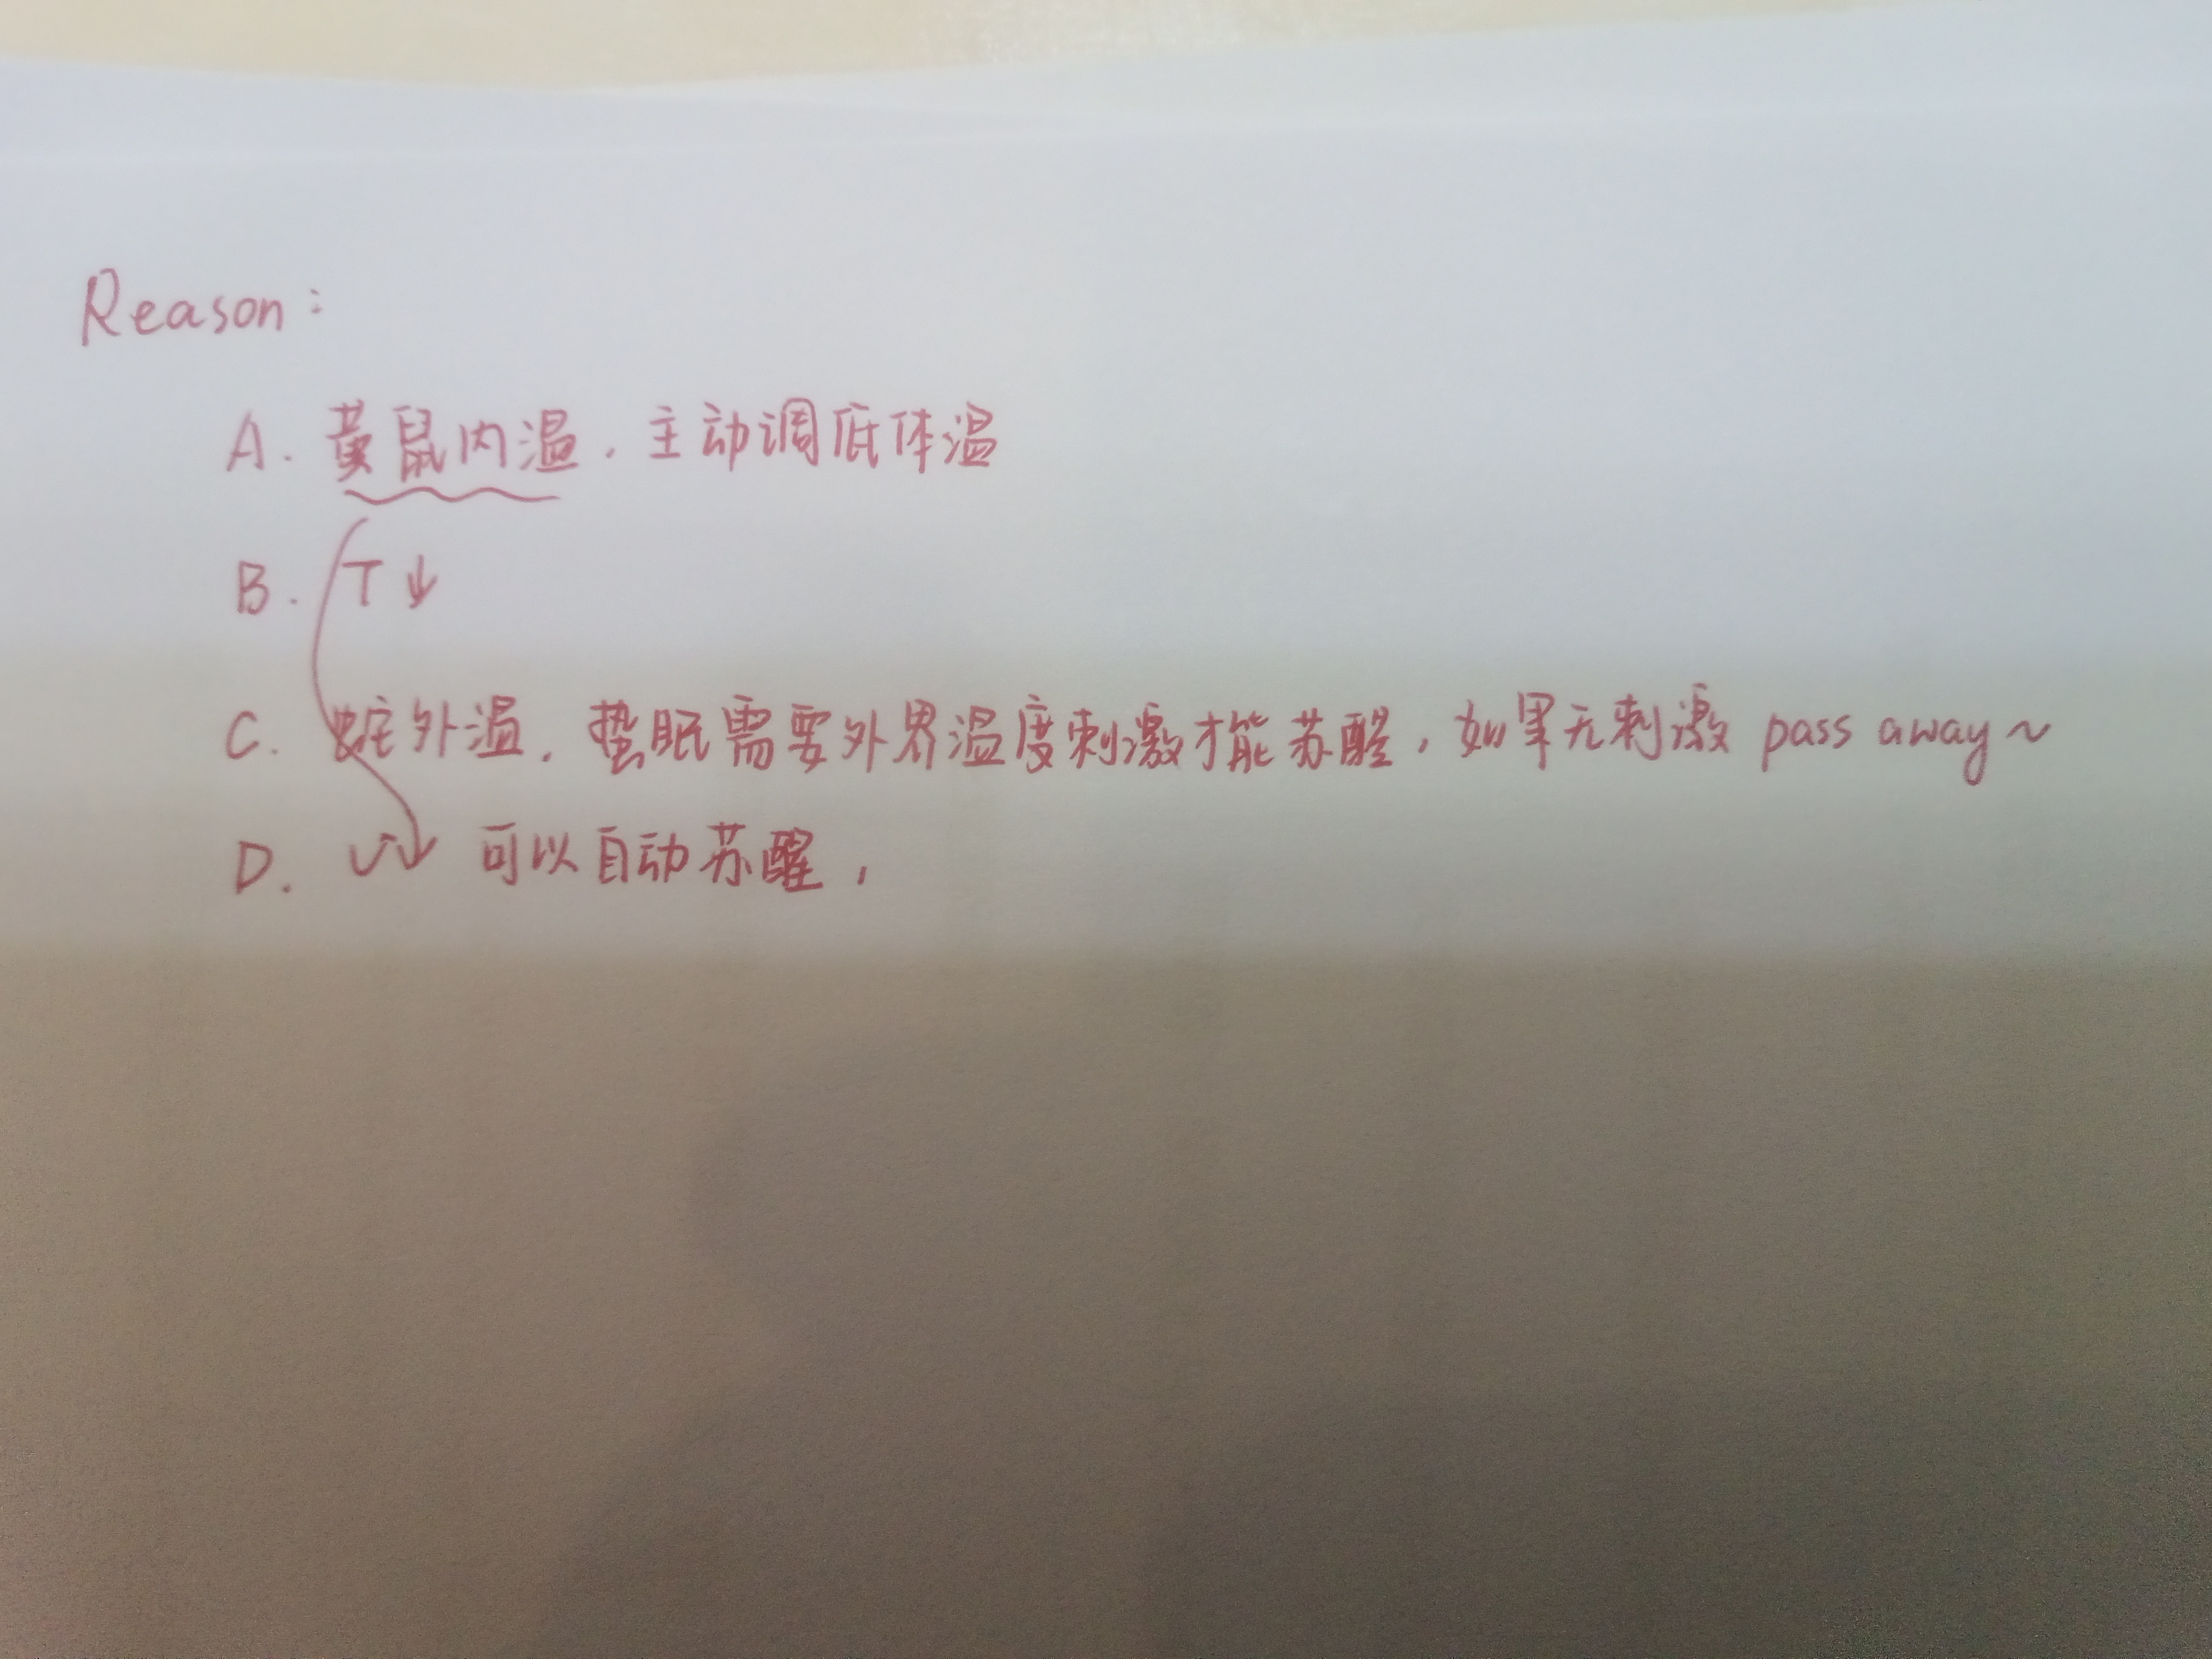 Reason:
A. 黄鼠内温，主动调底体温
B. T↓
C. 蛇外温，蛰眠需要外界温度刺激才能苏醒，如果无刺激 pass away~
D. 可以自动苏醒，